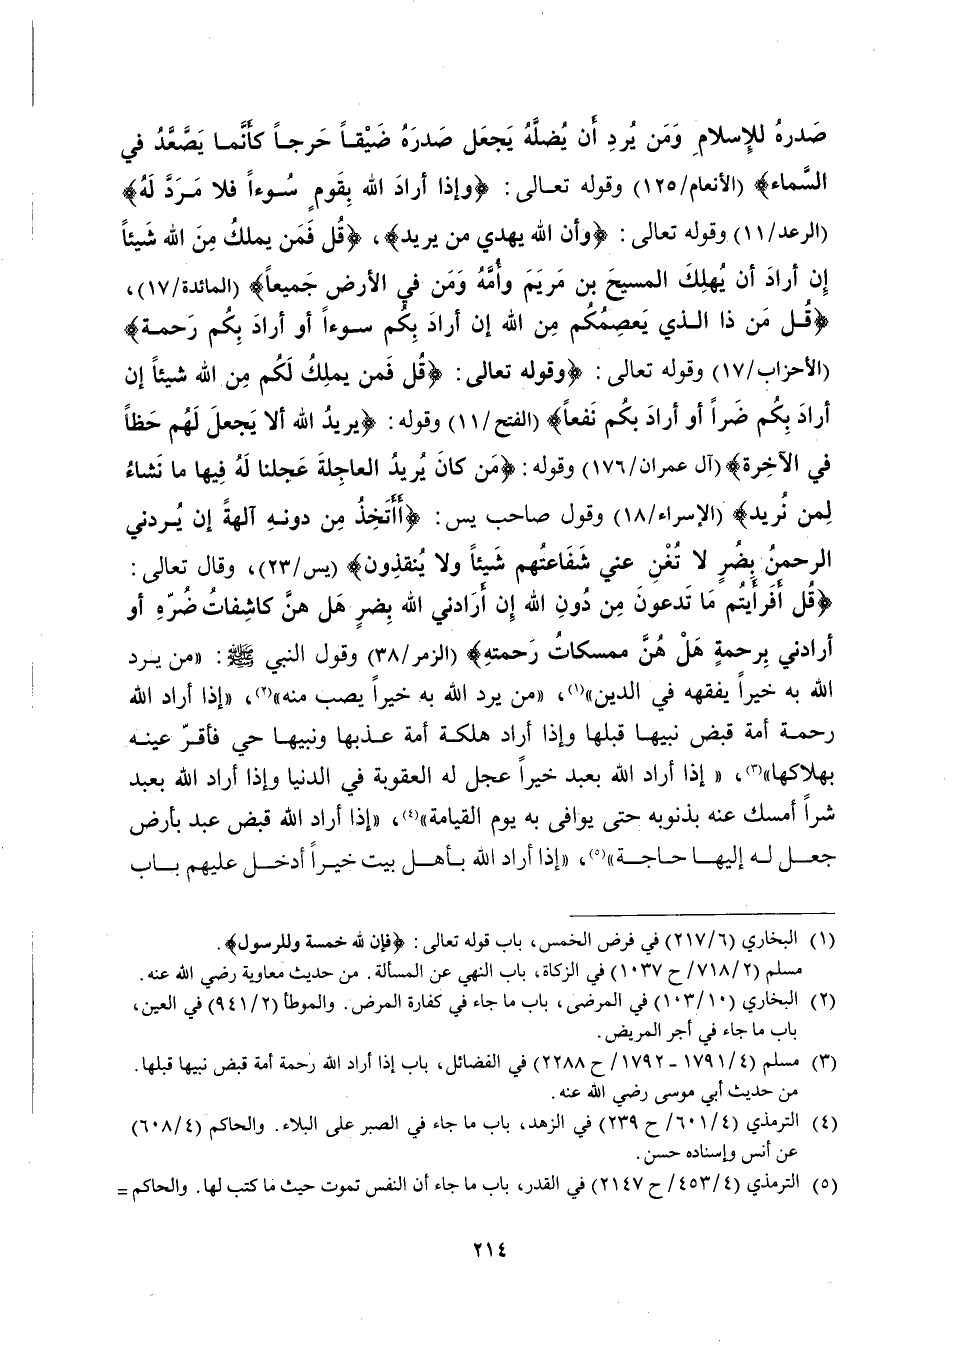 صَدرهُ للإسلامِ وَمَن يُردِ أن يُضلَّهُ يَجعَل صَدرَهُ ضَيْقاً حَرجاً كأنَّما يَصَّعَّدُ في
السَّماء﴾ (الأنعام/١٢٥) وقوله تعالى: ﴿وإذا أرادَ الله بِقَومٍ سُوءاً فلا مَرَدَّ لَهُ﴾
(الرعد/١١) وقوله تعالى: ﴿وأن الله يهدي من يريد﴾، ﴿قُل فَمَن يملكُ مِنَ الله شَيئاً
إن أرادَ أن يُهلِكَ المسيحَ بن مَريَمَ وأُمَّهُ وَمَن في الأرض جَميعاً﴾ (المائدة/١٧)،
﴿قُل مَن ذا الذي يَعصِمُكُم مِن الله إن أرادَ بكُم سوءاً أو أرادَ بِكُم رَحمة﴾
(الأحزاب/١٧) وقوله تعالى: ﴿وقوله تعالى: ﴿قُل فَمن يملِكُ لَكُم مِن الله شيئاً إن
أرادَ بِكُم ضَراً أو أرادَ بكُم نَفعاً﴾ (الفتح/١١) وقوله: ﴿يريدُ الله ألا يَجعلَ لَهُم حَظاً
في الآخِرة﴾ (آل عمران/١٧٦) وقوله: ﴿مَن كانَ يُريدُ العاجلةَ عَجلنا لَهُ فيها ما نَشاءُ
لِمن نُريد﴾ (الإسراء/١٨) وقول صاحب يس: ﴿أأَتَخِذُ مِن دونهِ آلهةً إن يُردني
الرحمنُ بِضُرٍ لا تُغْنِ عني شَفَاعتُهم شَيئاً ولا يُنقذِون﴾ (يس/٢٣)، وقال تعالى:
﴿قُل أفَرأيتُم مَا تَدعونَ مِن دُونِ الله إن أرَادني الله بِضرٍ هَل هنَّ كاشِفاتُ ضُرّهِ أو
أرادني بِرحمةٍ هَلْ هُنَّ ممسكاتُ رَحمتهِ﴾ (الزمر/٣٨) وقول النبي ﷺ: «من يرد
الله به خيراً يفقهه في الدين»(١)، «من يرد الله به خيراً يصب منه»(٢)، «إذا أراد الله
رحمة أمة قبض نبيها قبلها وإذا أراد هلكة أمة عذبها ونبيها حي فأقرّ عينه
بهلاكها»(٣)، « إذا أراد الله بعبد خيراً عجل له العقوبة في الدنيا وإذا أراد الله بعبد
شراً أمسك عنه بذنوبه حتى يوافى به يوم القيامة»(٤)، «إذا أراد الله قبض عبد بأرض
جعل له إليها حاجة»(٥)، «إذا أراد الله بأهل بيت خيراً أدخل عليهم باب
(١) البخاري (٢١٧/٦) في فرض الخمس، باب قوله تعالى: ﴿فإن لله خمسة وللرسول﴾.
مسلم (٧١٨/٢/ ح ١٠٣٧) في الزكاة، باب النهي عن المسألة. من حديث معاوية رضي الله عنه.
(٢) البخاري (١٠٣/١٠) في المرضى، باب ما جاء في كفارة المرض. والموطأ (٩٤١/٢) في العين،
باب ما جاء في أجر المريض.
(٣) مسلم (١٧٩١/٤ - ١٧٩٢/ ح ٢٢٨٨) في الفضائل، باب إذا أراد الله رحمة أمة قبض نبيها قبلها.
من حديث أبي موسى رضي الله عنه.
(٤) الترمذي (٦٠١/٤/ ح ٢٣٩) في الزهد، باب ما جاء في الصبر على البلاء. والحاكم (٦٠٨/٤)
عن أنس وإسناده حسن.
(٥) الترمذي (٤٥٣/٤/ ح ٢١٤٧) في القدر، باب ما جاء أن النفس تموت حيث ما كتب لها. والحاكم =
٢١٤